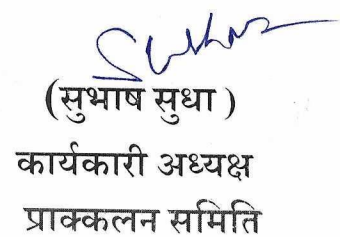 (सुभाष सुधा )
कार्यकारी अध्यक्ष
प्राक्कलन समिति